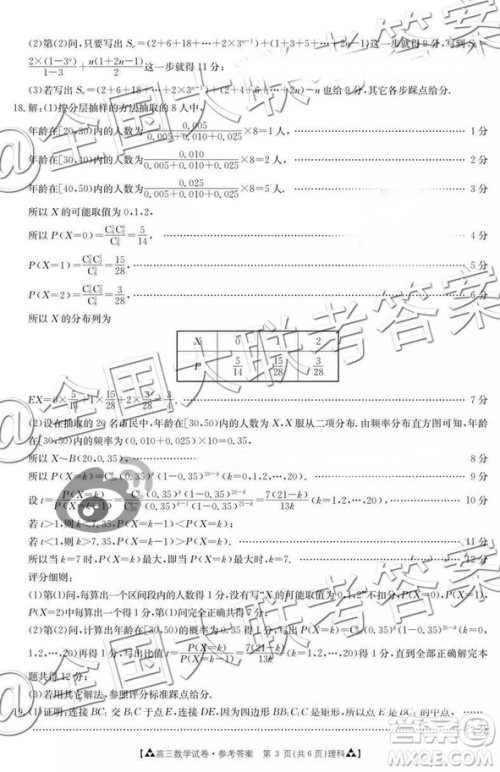 (2)第(2)问,只要写出 Sₙ=(2+6+18+…+2×3ⁿ⁻¹)+(1+3+5+…+(2n-1))这一步就得 9 分,写到 Sₙ=
2×(1-3ⁿ)/(1-3)+n(1+2n-1)/2 这一步就得 11 分;
(3)若写出 Sₙ=(2+6+18+…+2×3ⁿ⁻¹)+(2+4+6+…+2n)-n 也给 9 分,其它各步踩点给分.
18.解:(1)按分层抽样的方法抽取的 8 人中,
年龄在[20,30)内的人数为 0.005/(0.005+0.010+0.025)×8=1人, 1 分
年龄在[30,40)内的人数为 0.010/(0.005+0.010+0.025)×8=2人, 2 分
年龄在[40,50)内的人数为 0.025/(0.005+0.010+0.025)×8=5人. 3 分
所以 X 的可能取值为 0,1,2,
所以 P(X=0)=5/14, 4 分
P(X=1)=15/28, 5 分
P(X=2)=3/28, 6 分
所以 X 的分布列为
X 0 1 2
P 5/14 15/28 3/28
EX=0×5/14+1×15/28+2×3/28=3/4. 7 分
(2)设在抽取的 20 名市民中,年龄在[30,50)内的人数为 X,X 服从二项分布.由频率分布直方图可知,年龄在
[30,50)内的频率为(0.010+0.025)×10=0.35,
所以 X~B(20,0.35), 8 分
所以 P(X=k)=C₂₀ᵏ(0.35)ᵏ(1-0.35)²⁰⁻ᵏ(k=0,1,2,…,20). 9 分
设 t=P(X=k)/P(X=k-1)=C₂₀ᵏ(0.35)ᵏ(1-0.35)²⁰⁻ᵏ/C₂₀ᵏ⁻¹(0.35)ᵏ⁻¹(1-0.35)²¹⁻ᵏ=7(21-k)/13k(k=1,2,…,20), 10分
若 t>1,则 k<7.35,P(X=k-1)<P(X=k);
若 t<1,则 k>7.35,P(X=k-1)>P(X=k). 11 分
所以当 k=7 时,P(X=k)最大,即当 P(X=k)最大时,k=7. 12 分
评分细则:
(1)第(1)问,每算出一个区间段内的人数得 1 分,没有写“X 的可能取值为 0,1,2”不扣分,P(X=0),P(X=1),
P(X=2)每算出一个得 1 分,第(1)问完全正确共得 7 分;
(2)第(2)问,计算出年龄在[30,50)的概率为 0.35 得 1 分,写到
1,2,…,20)再得 1 分,写到 t=P(X=k)/P(X=k-1)=7(21-k)/13k(k=1,2,…,20)
题共得 12 分;
(3)若用其他解法,参照评分标准踩点给分.
19.(1)证明:连接 BC₁ 交 B₁C 于点 E,连接 DE,因为四边形 BB₁C₁C 是矩形,所以点 E 是 BC₁ 的中点,
高三数学试卷·参考答案 第 3 页(共 6 页)理科
@全国大联考答案
@全国大联考答案
@全国大联考答案